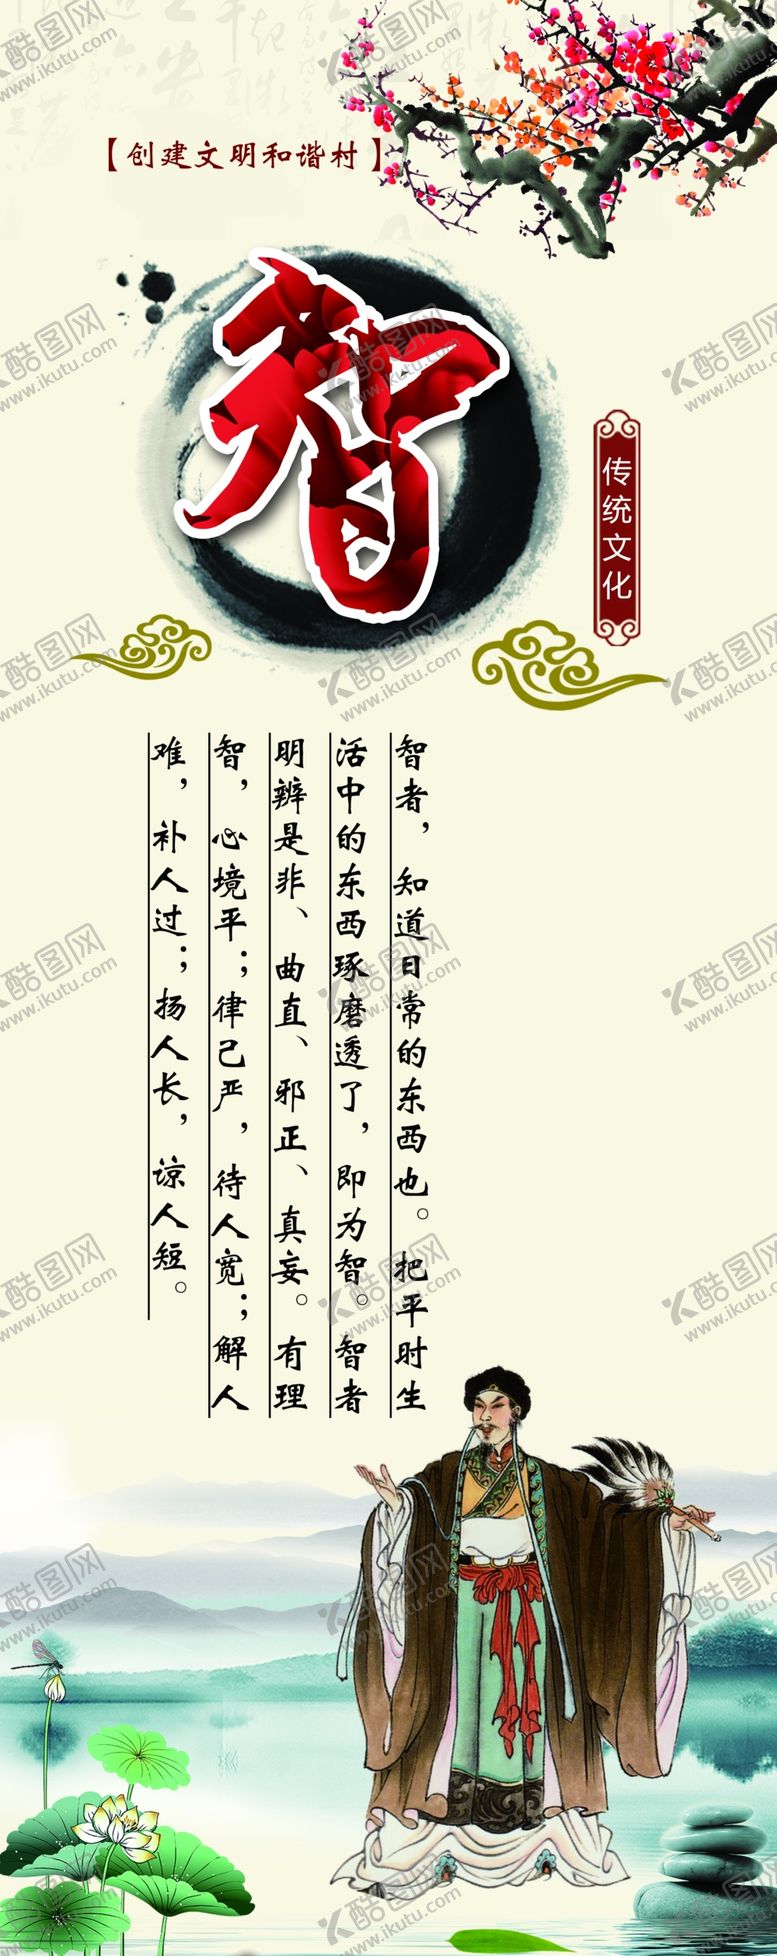 【创建文明和谐村】
智
传统文化
智者，知道日常的东西也。把平时生
活中的东西琢磨透了，即为智。智者
明辨是非、曲直、邪正、真妄。有理
智，心境平；律己严，待人宽；解人
难，补人过；扬人长，谅人短。
酷图网
www.ikutu.com